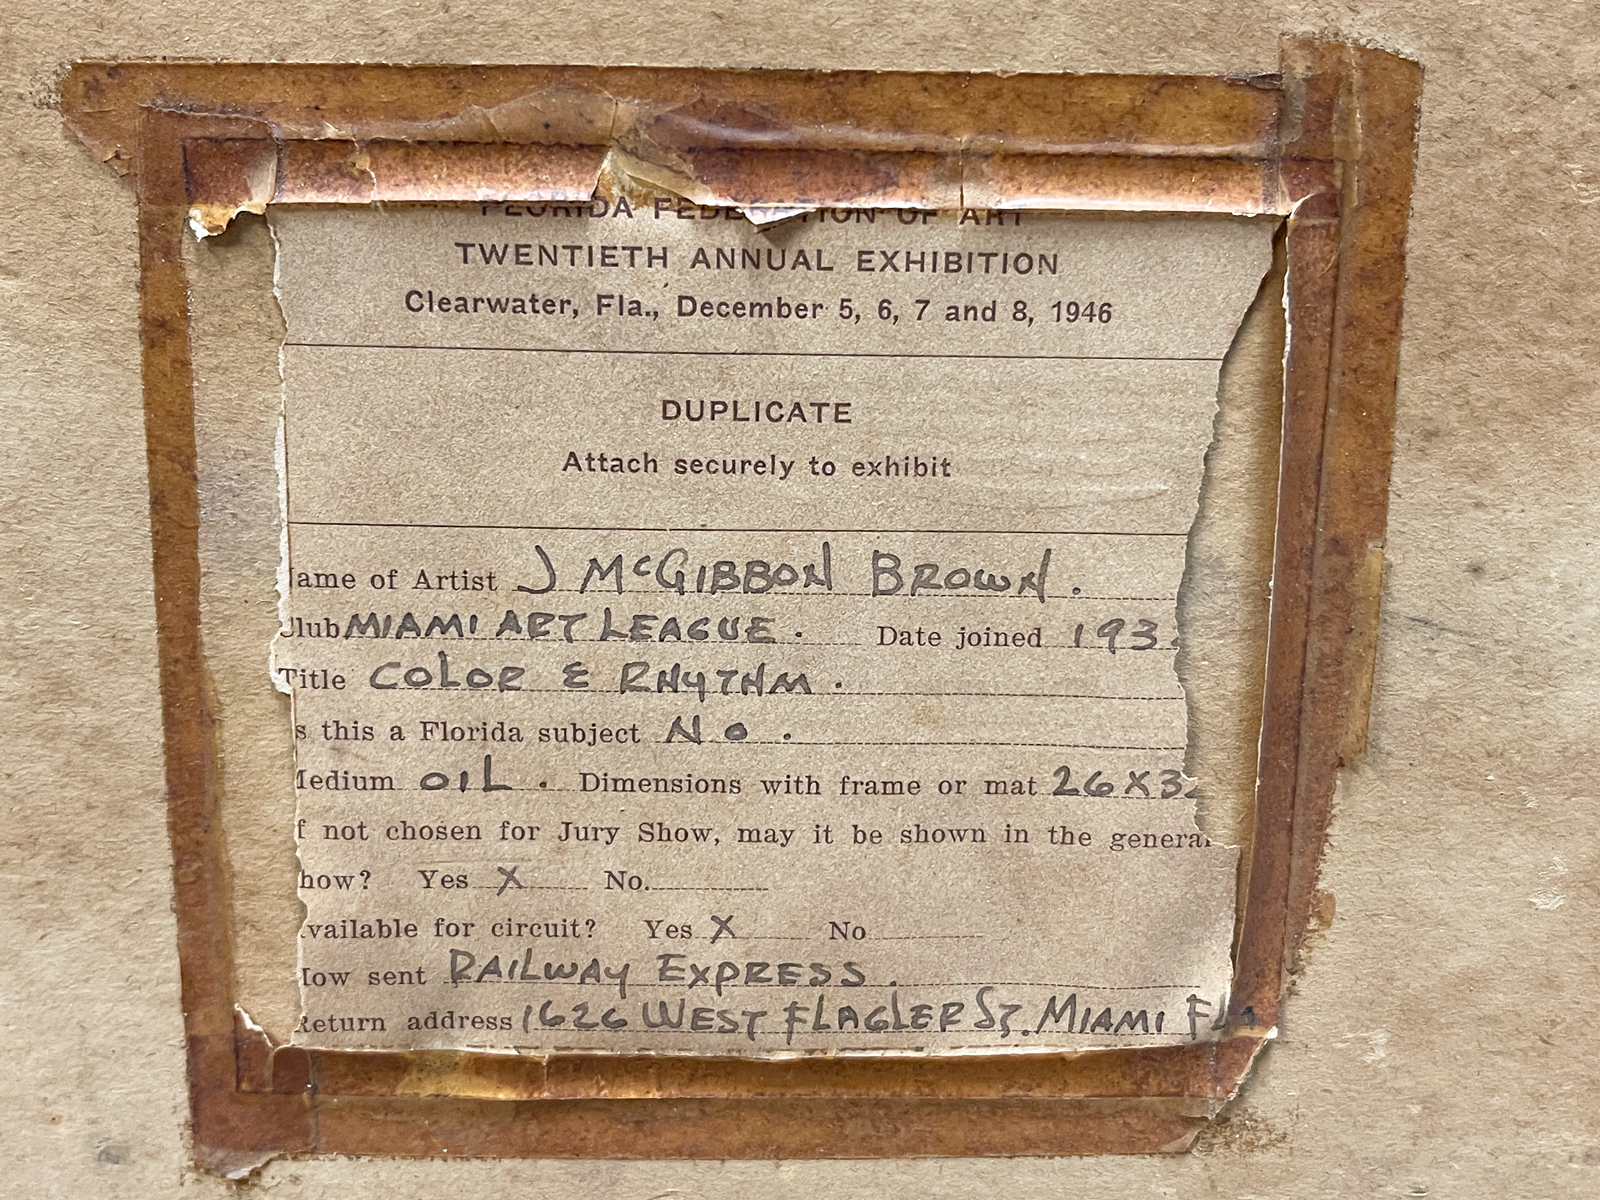 FLORIDA FEDERATION OF ART
TWENTIETH ANNUAL EXHIBITION
Clearwater, Fla., December 5, 6, 7 and 8, 1946
DUPLICATE
Attach securely to exhibit
ame of Artist J McGIBBON BROWN.
lub MIAMI ART LEAGUE. Date joined 193
Title COLOR & RHYTHM.
s this a Florida subject No.
edium OIL. Dimensions with frame or mat 26X32
f not chosen for Jury Show, may it be shown in the general
how? Yes X No.
vailable for circuit? Yes X No
ow sent RAILWAY EXPRESS.
Return address 1626 WEST FLAGLER ST. MIAMI FLA